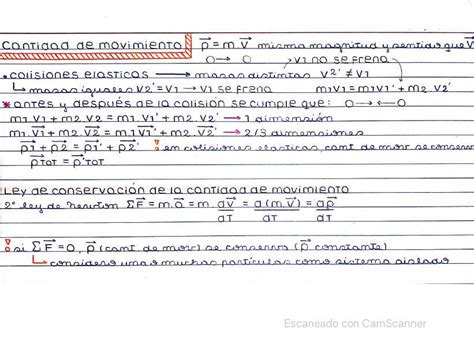 Cantidad de movimiento! p⃗ = m.V⃗ misma magnitud y sentido que V⃗
O→ O → V1 no se frena
• colisiones elasticas → masas distintas V2' ≠ V1
↳ masas iguales V2' = V1 → V1 se frena m1V1 = m1V1' + m2.V2'
* antes y después de la colisión se cumple que: O→←O
m1.V1 + m2.V2 = m1.V1' + m2.V2' → 1 dimensión
m1.V⃗1 + m2.V⃗2 = m1V⃗1' + m2.V⃗2' → 2/3 dimensiones
p⃗1 + p⃗2 = p⃗1' + p⃗2' ! en colisiones elasticas, cant. de mov. se conserv
p⃗TOT = p⃗'TOT
Ley de conservación de la cantidad de movimiento
2° ley de newton ΣF⃗ = m.a⃗ = m.dV⃗/dT = d(m.V⃗)/dT = dp⃗/dT
! si ΣF⃗ = 0, p⃗ (cant de mov) se conserva (p⃗ constante)
↳ considero una o muchas particulas como sistema aislado
Escaneado con CamScanner